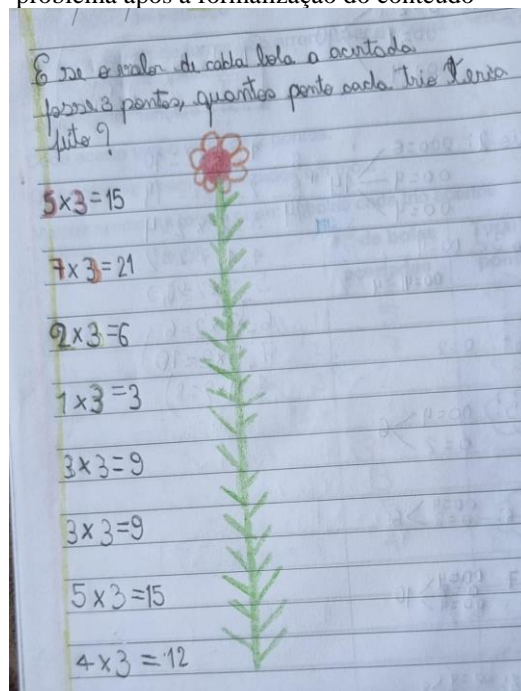 problema após a formalização do conteúdo
E se o valor de cada bola a acertada
fosse 3 pontos, quantos ponto cada trio teria
feito?
5x3=15
7x3=21
2x3=6
1x3=3
3x3=9
3x3=9
5x3=15
4x3=12